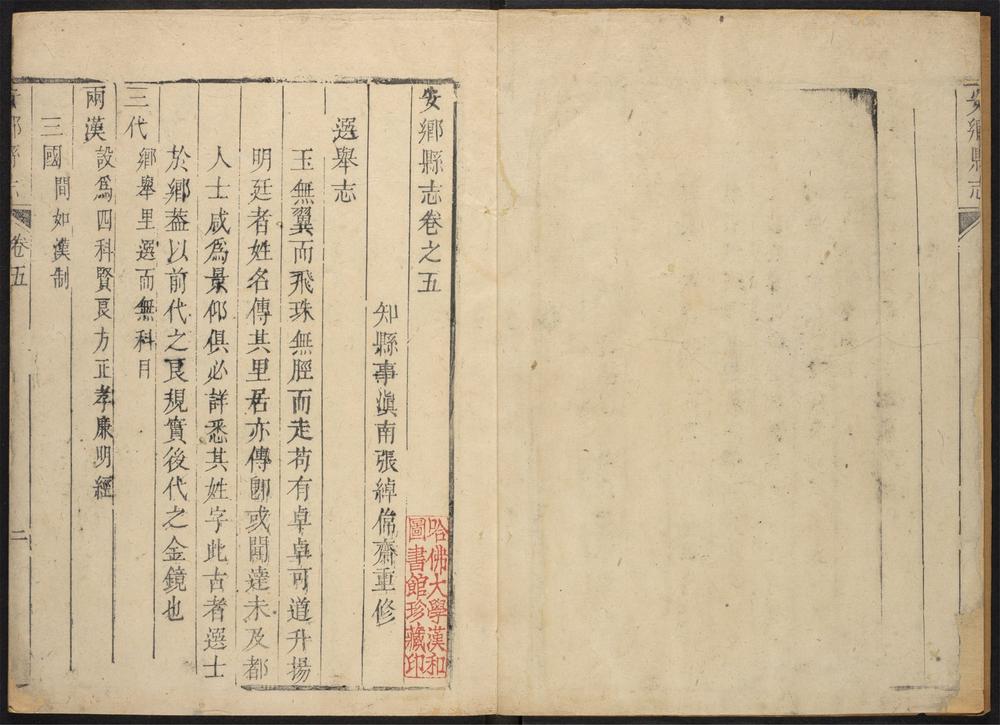 安鄉縣志
安鄉縣志卷之五
知縣事滇南張綽偹齋重修
哈佛大學漢和
圖書館珍藏印
選舉志
玉無翼而飛珠無脛而走苟有卓卓可道升揚
明廷者姓名傳其里居亦傳卽或聞達未及都
人士咸爲景仰俱必詳悉其姓字此古者選士
於鄉葢以前代之良規實後代之金鏡也
三代 鄉舉里選而無科目
兩漢 設爲四科賢良方正孝廉明經
三國 間如漢制
卷五
二